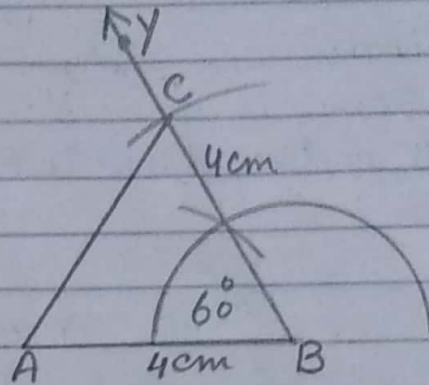 Y
C
4cm
60°
A 4cm B